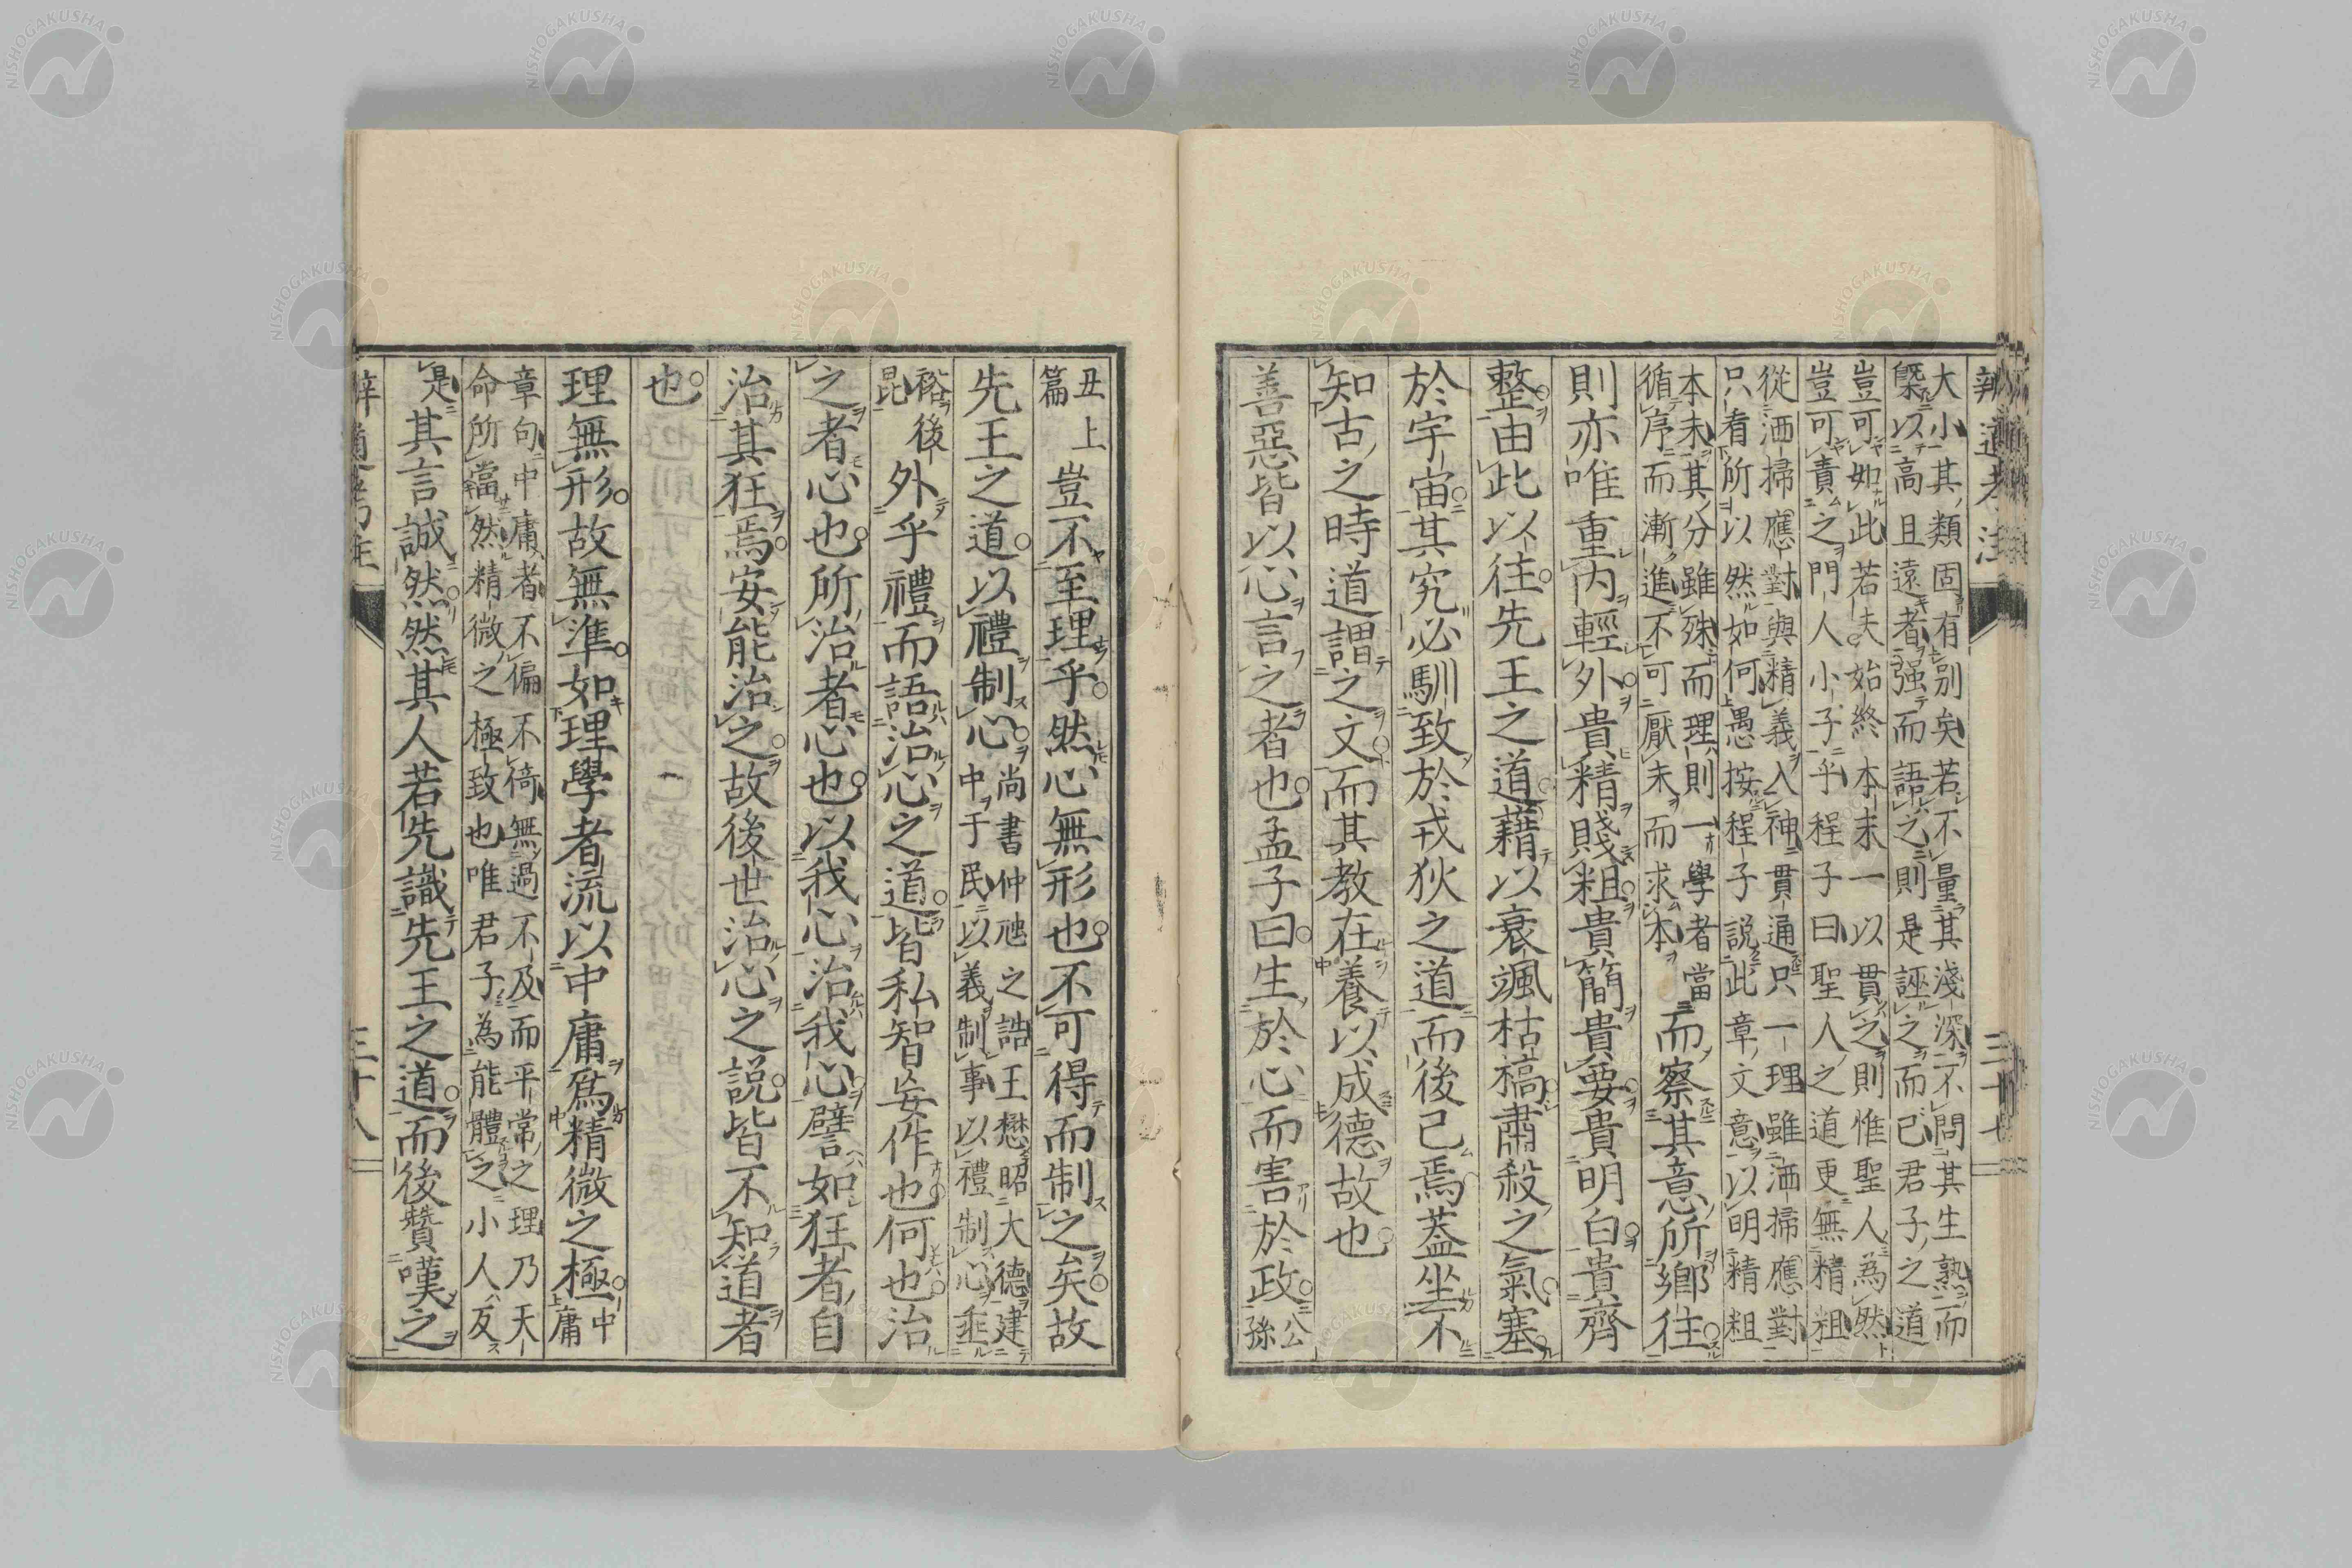 辨道考注
三十七
大小其類固有別矣若不量其淺深不問其生熟而
槩以高且遠者强而語之則是誣之而已君子之道
豈可如此若夫始終本末一以貫之則惟聖人為然
豈可責之門人小子乎程子曰聖人之道更無精粗
從洒掃應對與精義入神貫通只一理雖洒掃應對
只看所以然如何愚按程子説此章文意以明精粗
本末其分雖殊而理則一學者當
循序而漸進不可厭末而求本
而察其意所鄉往
則亦唯重内輕外貴精賤粗貴簡貴要貴明白貴齊
整由此以往先王之道藉以衰颯枯槁肅殺之氣塞
於宇宙其究必馴致於戎狄之道而後已焉葢坐不
知古之時道謂之文而其教在養以成德故也
善惡皆以心言之者也孟子曰生於心而害於政公孫
丑上篇
豈不至理乎然心無形也不可得而制之矣故
先王之道以禮制心
尚書仲虺之誥王懋昭大德建
中于民以義制事以禮制心垂
裕後昆
外乎禮而語治心之道皆私智妄作也何也治
之者心也所治者心也以我心治我心譬如狂者自
治其狂焉安能治之故後世治心之説皆不知道者
也
理無形故無準如理學者流以中庸爲精微之極中庸
章句中庸者不偏不倚無過不及而平常之理乃天
命所當然精微之極致也唯君子為能體之小人反
是
其言誠然然其人若先識先王之道而後贊嘆之
辨道考注
三十八
NISHOGAKUSHA